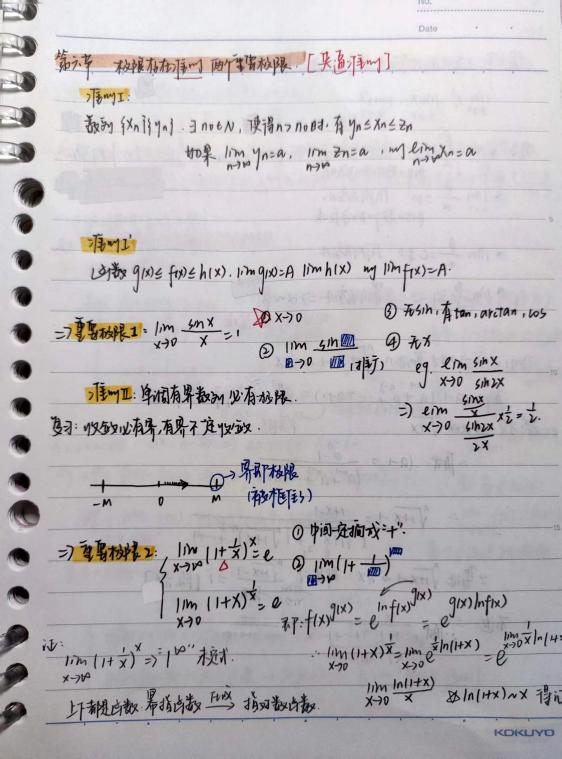 No.
Date
第六节 极限存在准则 两个重要极限. [夹逼准则]
准则I:
数列{xn}{yn}. ∃n0∈N, 使得n>n0时, 有yn≤xn≤zn
如果 lim n→∞ yn=a, lim n→∞ zn=a, 则 lim n→∞ xn=a
准则I'
函数 g(x)≤f(x)≤h(x). lim g(x)=A lim h(x) 则 lim f(x)=A.
⇒重要极限1: lim x→0 sinx/x =1
① x→0
② lim →0 sin / (推广)
③ 无sin, 有tan, arctan, cos
④ 无x
eg. lim x→0 sinx/sin2x
⇒ lim x→0 (sinx/x)/(sin2x/2x) ×1/2=1/2.
准则II: 单调有界数列必有极限.
复习: 收敛必有界 有界不一定收敛.
-M 0 M
→界即极限
(被框住)
⇒重要极限2: lim x→∞ (1+1/x)^x=e
lim x→0 (1+x)^(1/x)=e
① 中间一定搞成"+".
② lim →∞ (1+1/ )
即: f(x)^g(x) = e^(ln f(x)^g(x)) = e^(g(x)lnf(x))
∴ lim x→0 (1+x)^(1/x)=lim x→0 e^(1/x ln(1+x)) =e^(lim x→0 1/x ln(1+
证:
lim x→∞ (1+1/x)^x ⇒"1^∞"模式.
lim x→0 ln(1+x)/x ln(1+x)~x 得
上下都是函数. 幂指函数 → 指对数函数.
KOKUYO